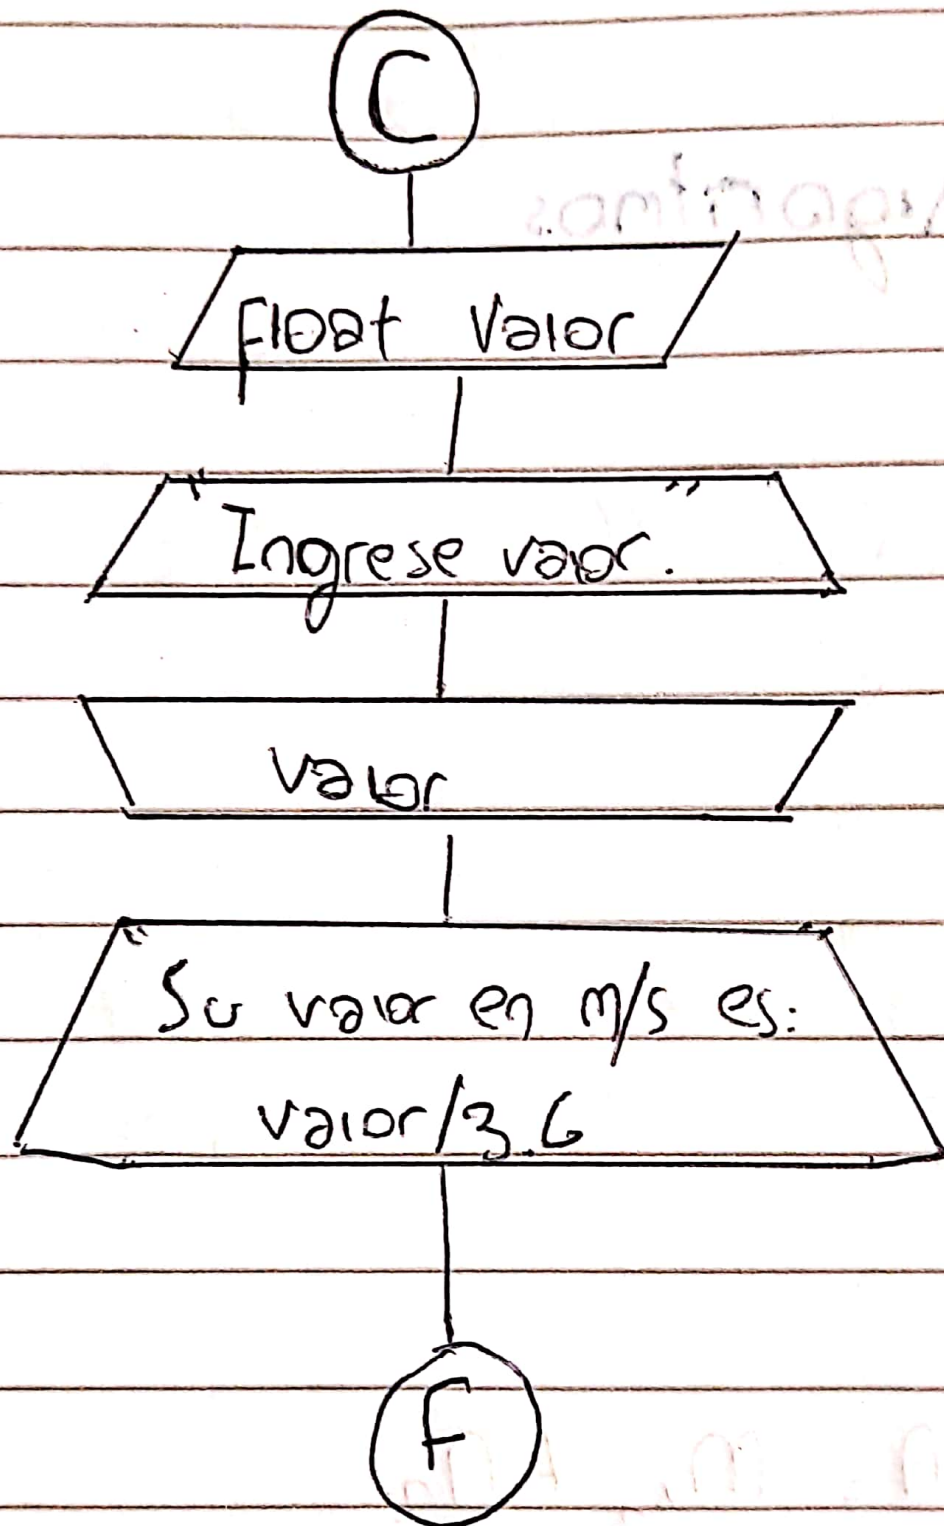 C
Float Valor
"Ingrese valor."
valor
"Su valor en m/s es:"
valor/3.6
F